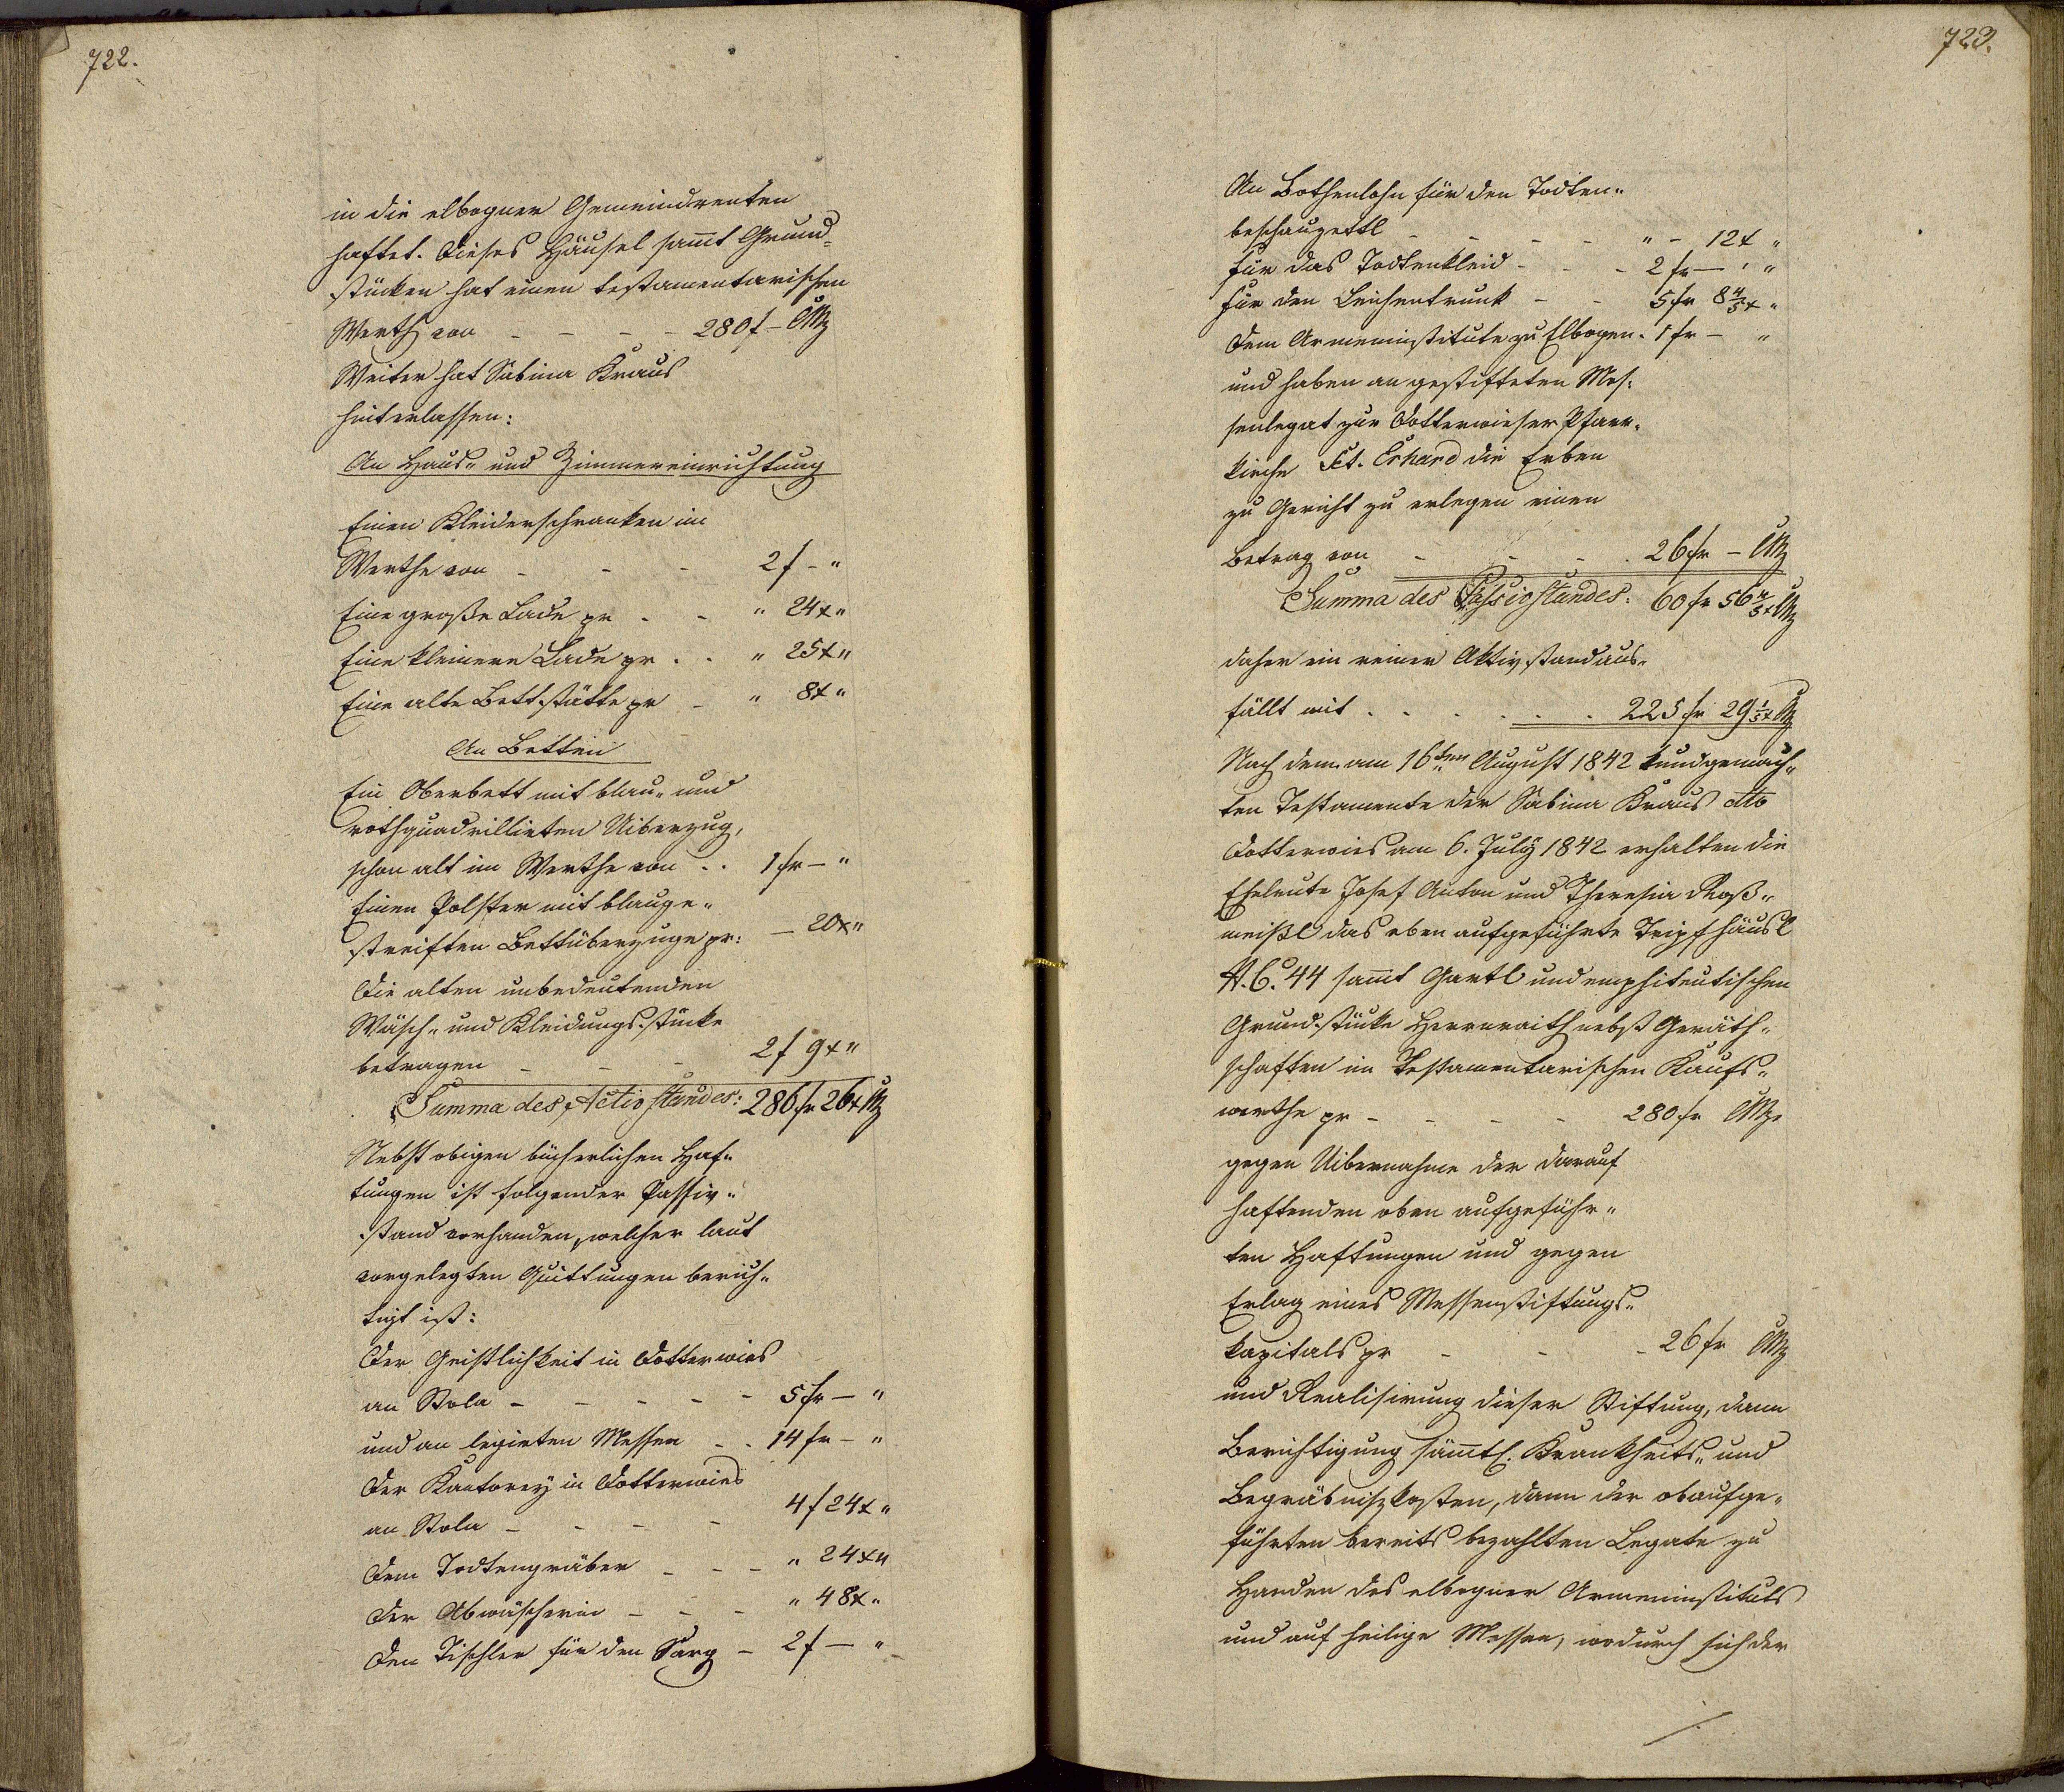 722.
in die elbogner Gemeindrenten
haftet. Dieses Häusel sammt Grund-
stücken hat einen testamentarischen
Werth von - - - - 280 f - CMz
Weiter hat Sabina Kraus
hinterlassen:
An Haus- und Zimmereinrichtung
Einen Kleiderschranken im
Werthe von - - - 2 f - "
Eine große Lade pr - - " 24 x "
Eine kleinere Lade pr . . " 25 x "
Eine alte Bettstätte pr - " 8 x "
An Betten
Ein Oberbett mit blau- und
rothquadrillirten Uiberzug,
schon alt im Werthe von . . 1 fr - "
Einen Polster mit blauge-
streiften Bettüberzuge pr: - 20 x "
Die alten unbedeutenden
Wäsch- und Kleidungsstücke
betragen - - - 2 f 9 x "
Summa des Activstandes: 286 fr 26 x CMz
Nebst obigen bücherlichen Haf-
tungen ist folgender Passiv-
stand vorhanden, welcher laut
vorgelegten Quittungen berich-
tigt ist:
Der Geistlichkeit in Dotterwies
an Stola - - - - - 5 fr - "
und an legirten Messen - . 14 fr - "
Der Kantorey in Dotterwies
an Stola - - - - 4 f 24 x "
Dem Todtengräber - - - " 24 x "
Der Abwäscherin - - - " 48 x "
Den Tischler für den Sarg - 2 f - "
723.
An Bothenlohn für den Todten-
beschauzettl - - - - " - 12 x "
Für das Todtenkleid - - - 2 fr - ' "
Für den Leichentrunk - - 5 fr 8 4/5 x "
Dem Armeninstitute zu Elbogen . 1 fr - "
und haben an gestifteten Mes-
senlegat zur Dotterwieser Pfarr-
kirche Sct. Erhard die Erben
zu Gericht zu erlegen einen
Betrag von - - - . 26 fr - CMz
Summa des Passivstandes: 60 fr 56 4/5 x CMz
daher ein reiner Aktivstand aus-
fällt mit . . . . . . 225 fr 29 1/5 x CMz
Nach dem am 16ten August 1842 kundgemach-
ten Testamente der Sabina Kraus dto
Dotterwies am 6. July 1842 erhalten die
Eheleute Josef Anton und Theresia Roß-
meißl das oben aufgeführte Tripfhäusl
N. C. 44 sammt Gartl und emphiteutischen
Grundstücke Herrnraith nebst Geräth-
schaften im Testamentarischen Kaufs-
werthe pr - - - - 280 fr CMz
gegen Uibernahme der darauf
haftenden oben aufgeführ-
ten Haftungen und gegen
Erlag eines Messenstiftungs-
kapitals pr - - - 26 fr CMz
und Realisirung dieser Stiftung, dann
Berichtigung sämmtl. Krankheits- und
Begräbnißkosten, dann der obaufge-
führten bereits bezahlten Legate zu
Handen des elbogner Armeninstituts
und auf heilige Messen, wodurch sich der